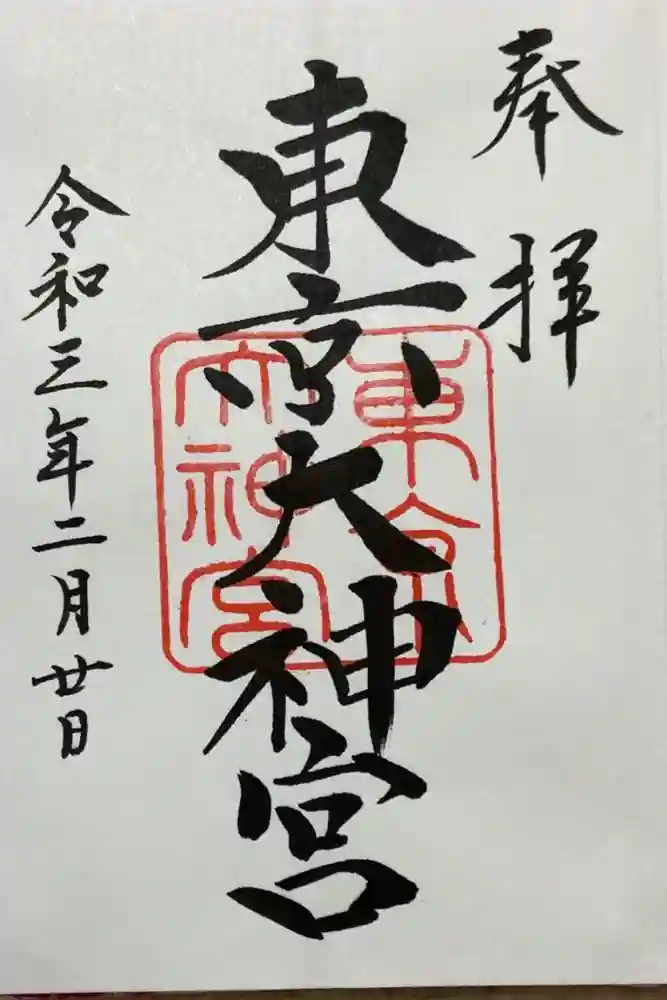 奉拝
東京大神宮
東京大神宮
令和三年二月廿日